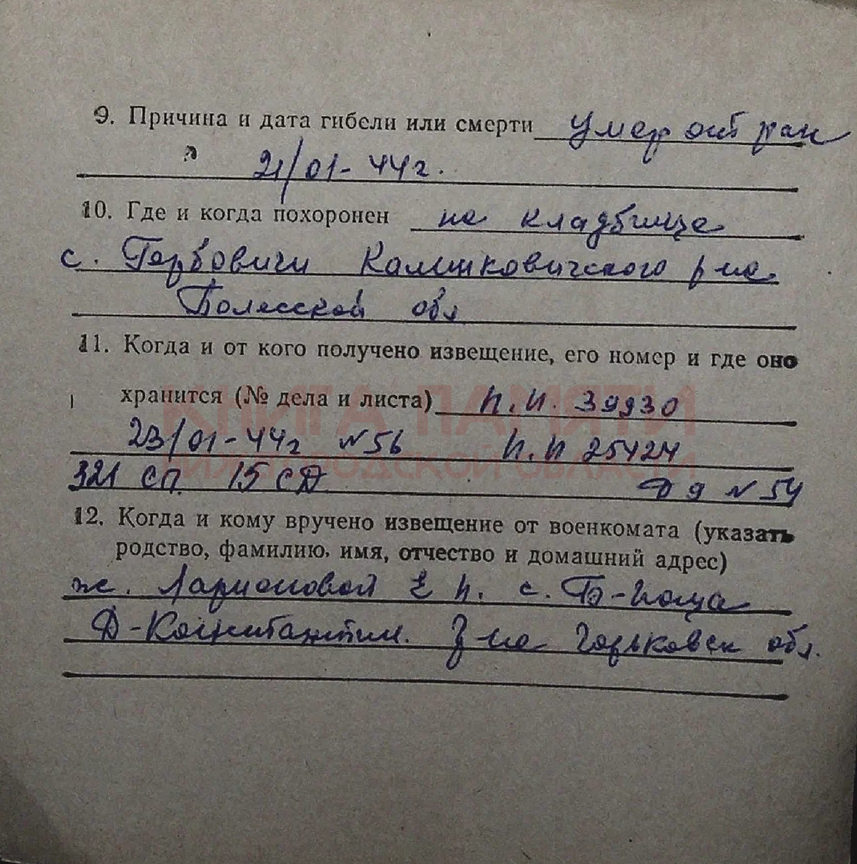 9. Причина и дата гибели или смерти умер от ран
21/01-44г.
10. Где и когда похоронен на кладбище
с. Горбовичи Калинковичского р-на
Полесской обл
11. Когда и от кого получено извещение, его номер и где оно
хранится (№ дела и листа) П.И. 39930
КНИГА ПАМЯТИ
23/01-44г №56 П.П 25424
НИЖЕГОРОДСКОЙ ОБЛАСТИ
321 СП 15 СД Д 9 №54
12. Когда и кому вручено извещение от военкомата (указать
родство, фамилию, имя, отчество и домашний адрес)
ж. Ларионовой Е П. с. Б-
Д-Константин. р-на Горьковск обл.